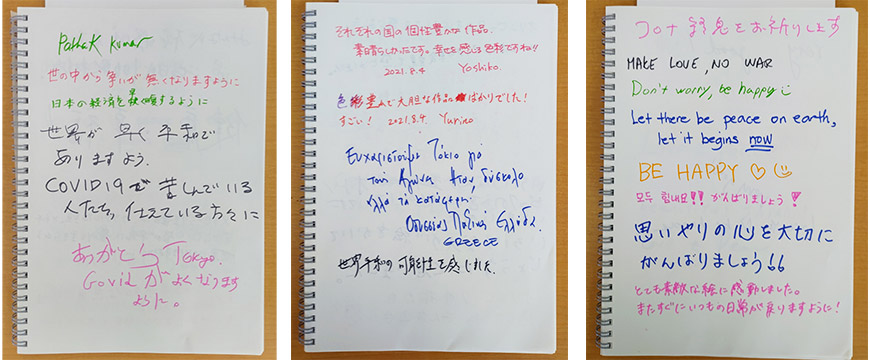 Pathak Kumar
世の中から争いが無くなりますように
日本の経済を早く復するように
世界が早く平和で
ありますよう.
COVID19で苦しんでいる
人たち、仕えている方々に
ありがとう Tokyo.
Covidがよくなります
ように。
それぞれの国の個性豊かな作品、
素晴らしかったです。幸せを感じる色彩ですね!!
2021.8.4 Yoshiko.
色彩豊んで大胆な作品ばかりでした!
すごい! 2021.8.4 Yurino
Ευχαριστούμε Τόκιο για
τους Αγώνες Ηταν δύσκολο
αλλά τα κατάφερες
Ελλάδα.
GREECE
世界平和の可能性を感じれた.
コロナ終息をお祈りします
MAKE LOVE, NO WAR
Don't worry, be happy
Let there be peace on earth,
let it begins now
BE HAPPY ♡
모두 힘내요!! がんばりましょう!
思いやりの心を大切に
がんばりましょう!!
とても素敵な絵に感動しました。
またすぐにいつもの日常が戻りますように!